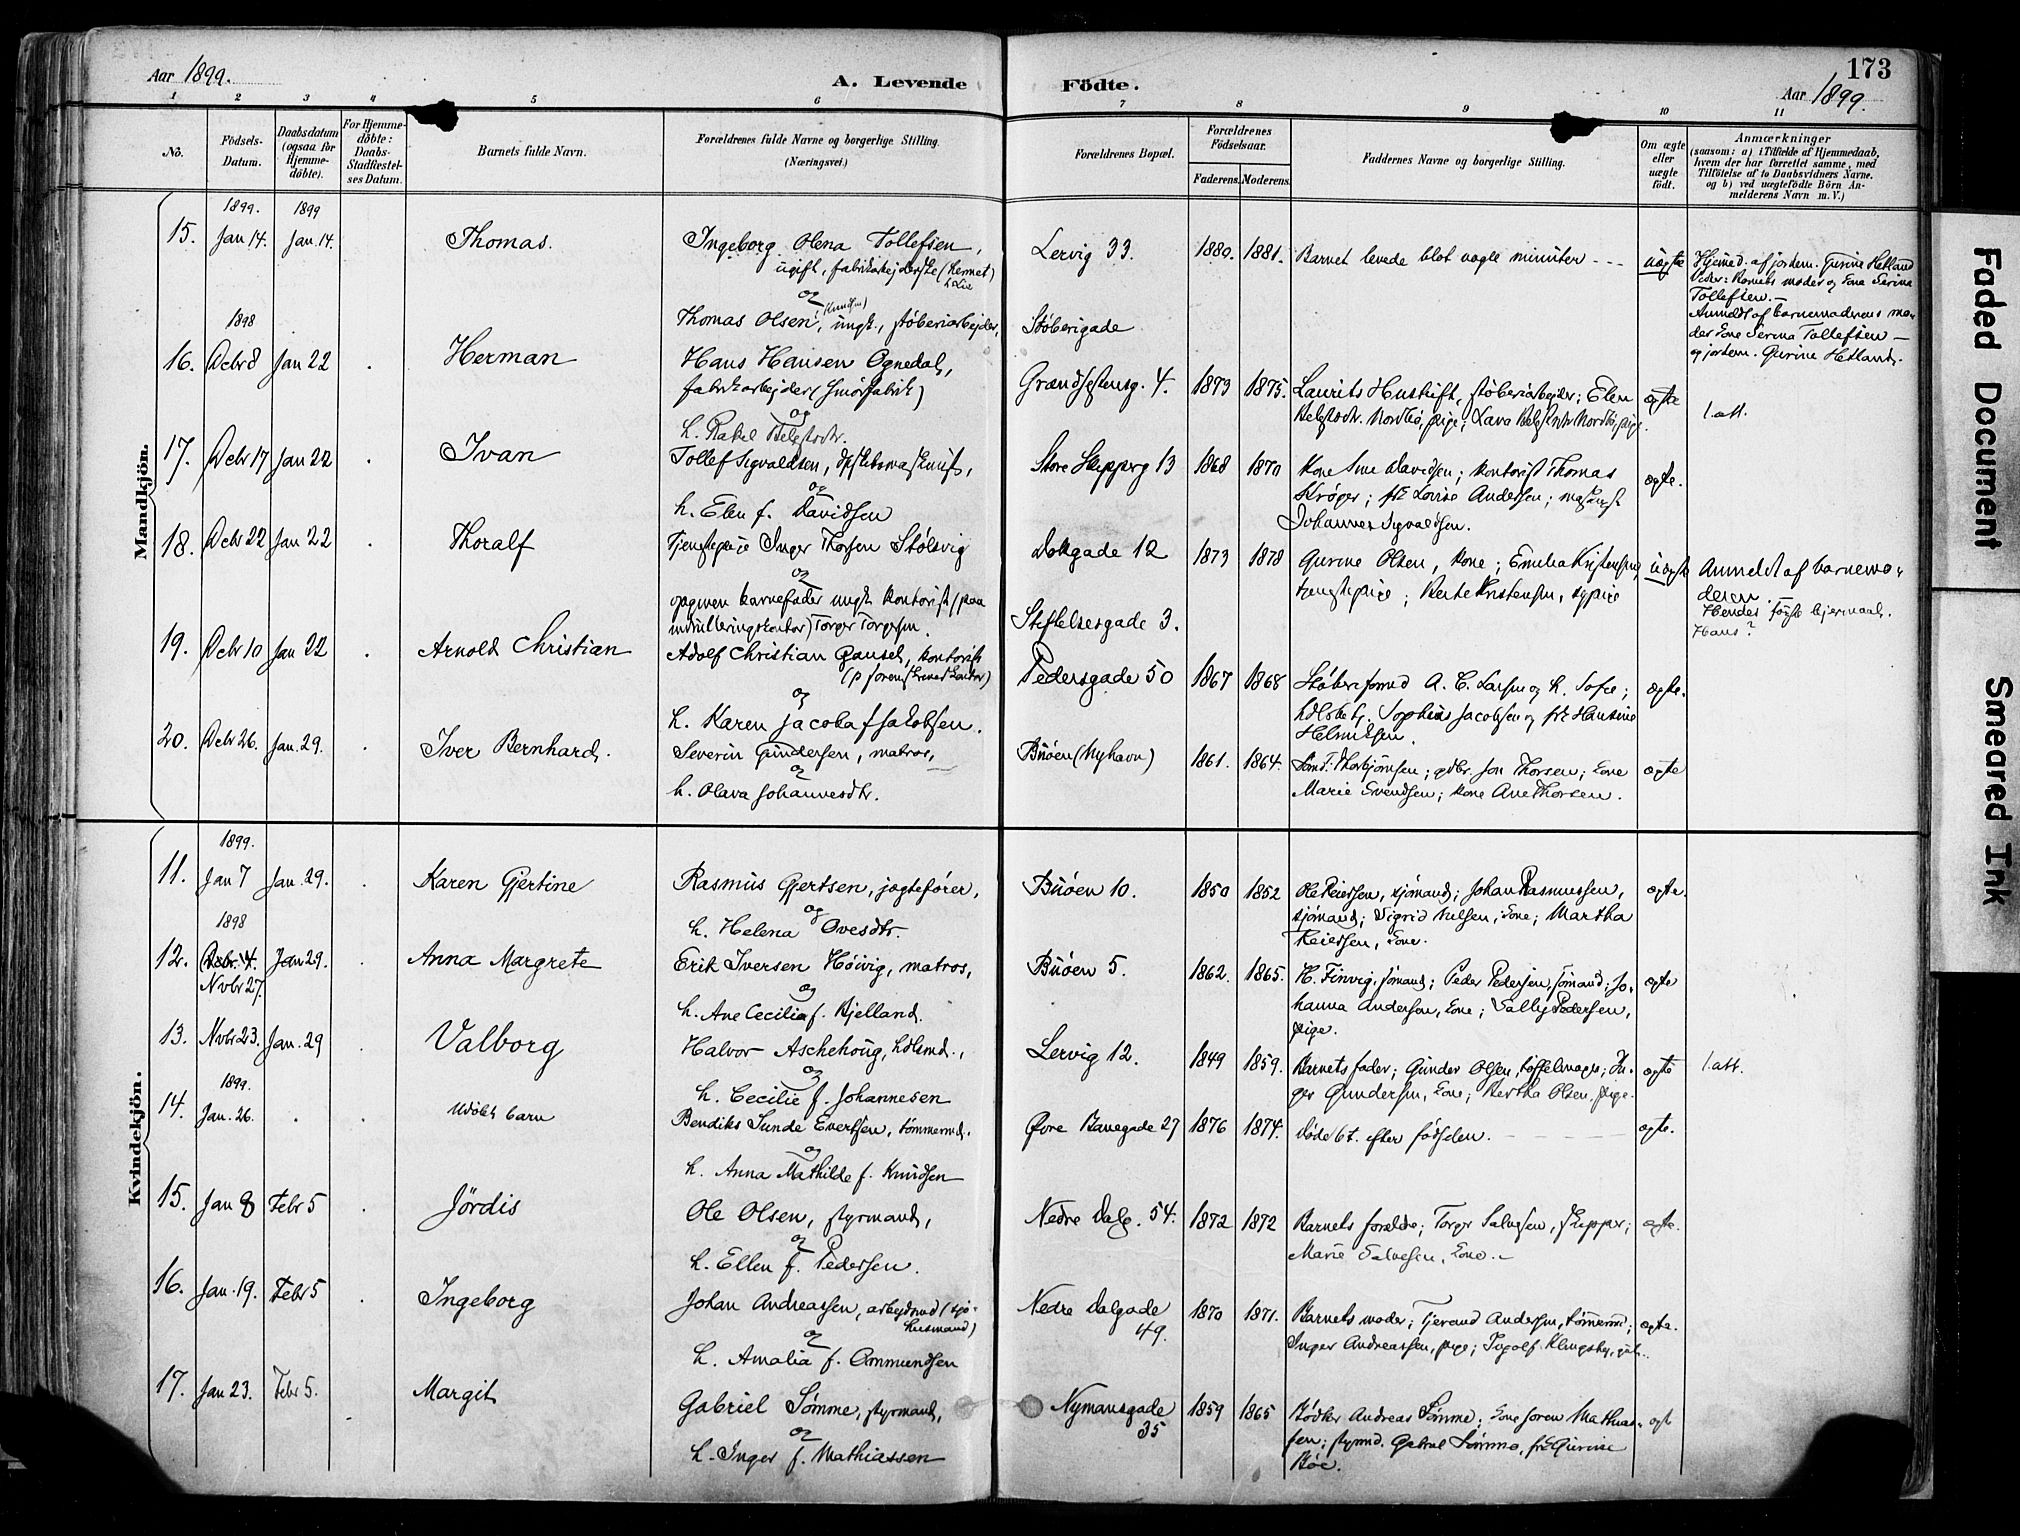 173
Aar 1899.
A. Levende Födte.
Aar 1899.
1 2 3 4 5 6 7 8 9 10 11
No.
Födsels-Datum.
Daabsdatum (ogsaa for Hjemmedöbte).
For Hjemmedöbte: Daabs-Stadfæstelses Datum.
Barnets fulde Navn.
Forældrenes fulde Navne og borgerlige Stilling. (Næringsvei.)
Forældrenes Bopæl.
Forældrenes Födselsaar.
Faderens. Moderens.
Faddernes Navne og borgerlige Stilling.
Om ægte eller uægte födt.
Anmærkninger
(saasom: a) i Tilfælde af Hjemmedaab, hvem der har forrettet samme, med Tilföielse af to Daabsvidners Navne. og b) ved uægtefödte Börn Anmelderens Navn m. V.)
Mandkjön.
1899. 1899
15. Jan 14. Jan. 14. Thomas. Ingeborg Olena Tollefsen, Lervig 33. 1880. 1881. Barnet levede blot nogle minuter - - - uægte Hjemmed. af jordem. Gurine Hetland
ugift, fabrikarbejderske
Vidner: Barnets moder og kone Serina
Tollefsen. -
og
Thomas Olsen, ungk., støberiarbejder, Støberigade
Anmeldt af barnemoderens moder kone Serina Tollefsen -
og jordem. Gurine Hetland.
1898
16. Debr 8 Jan 22 Herman Hans Hansen Ognedal, 1873 1875. ægte 1. att.
fabrikarbejder (smörfabrik)
og
h. Rakel
17. Debr 17 Jan 22 . Ivan Tollef Sigvaldsen, 13 1868 1870 Kone Davidsen; kontorist Thomas ægte.
og
Krøger; frk Lovise Andersen;
h. Elen f. Davidsen
Johannes Sigvaldsen.
18. Debr 22 Jan 22 . Thoralf Tjenestepige Inger Thorsen Stölsvig Dokgade 12 1873 1878 Gurine Olsen, kone; Emilia uægte Anmeldt af barnemoderen.
og
tjenestepige; Berte Kristensen, sypige
opgiven barnefader ungk. kontorist (paa Stiftelsesgade 3.
Hendes første lejermaal.
Hans?
indrulleringskontor) Torger Torgersen.
19. Debr 10 Jan 22 . Arnold Christian Adolf Christian Gausel, kontorist Pedersgade 50 1867 1868 A. C. Larsen og h. Sofie; ægte.
og
Sophius Jacobsen og frk Hansine
h. Karen Jacoba f Jakobsen.
20. Debr 26. Jan. 29. . Iver Bernhard. Severin Gundersen, matros, Buöen (Nyhavn) 1861. 1864. Thorbjørnsen; gdbr. Jon Thorsen; kone ægte
og
Marie Svendsen; kone Ane Thorsen.
h. Olava Johannesdtr.
Kvindekjön.
1899.
11. Jan 7 Jan. 29. . Karen Gjertine Rasmus Gjertsen, jagtefører, Buöen 10. 1850 1852 Ole Reiersen, sjömand; Johan Rasmussen, ægte.
og
sjömand; Sigrid Nilsen, kone; Martha
h. Helena Ovesdtr.
Reiersen, kone.
1898
12. Debr. 4. Jan 29. . Anna Margrete Erik Iversen Höivig, matros, Buöen 5. 1862. 1865. H. Finvig, sjömand; Peder Pedersen, sjömand; Jo- ægte
Nvbr 27.
og
hanna Andersen, kone; Sally Pedersen,
h. Ane Cecilia f. Bjelland.
pige.
13. Nvbr 23. Jan. 29 . Valborg Halvor Aschehoug, hdlsmd., Lervig 12. 1849 1859. Barnets fader; Gunder Olsen, toffelmager; In- ægte 1. att.
og
ger Gundersen, kone; Bertha Olsen, pige.
h. Cecilie f. Johannesen
1899.
14. Jan. 26. . . Udöbt barn Bendiks Sunde Evertsen, tömmermd. Øvre Banegade 27 1876 1874. Døde 6 t. efter födselen. ægte.
og
h. Anna Mathilde f. Knudsen
15. Jan 8 Febr 5 . Jördis Ole Olsen, styrmand, Nedre Dalg. 54. 1872 1872 Barnets forældre; Torger Salvesen, skipper; ægte.
og
Marie Salvesen, kone. -
h. Ellen f. Pedersen.
16. Jan. 19. Febr 5 . Ingeborg Johan Andreassen, arbejdsmd (sjö- Nedre Dalgade 49. 1870 1871. Barnets moder; Tjerand Andersen, tömmermd; ægte.
husmand)
og
Inger Andreassen, pige; Ingolf
h. Amalia f. Ommundsen
17. Jan 23. Febr 5. Margit Gabriel Sömme, styrmand, Nymansgade 35 1859 1865 Bödker Andreas Sömme; kone Soren Mathias- ægt
og
sen; styrmd. Gabriel Sömme, frk Gurine
h. Inger f. Mathiassen
Böe.
Faded Document
Smeared Ink